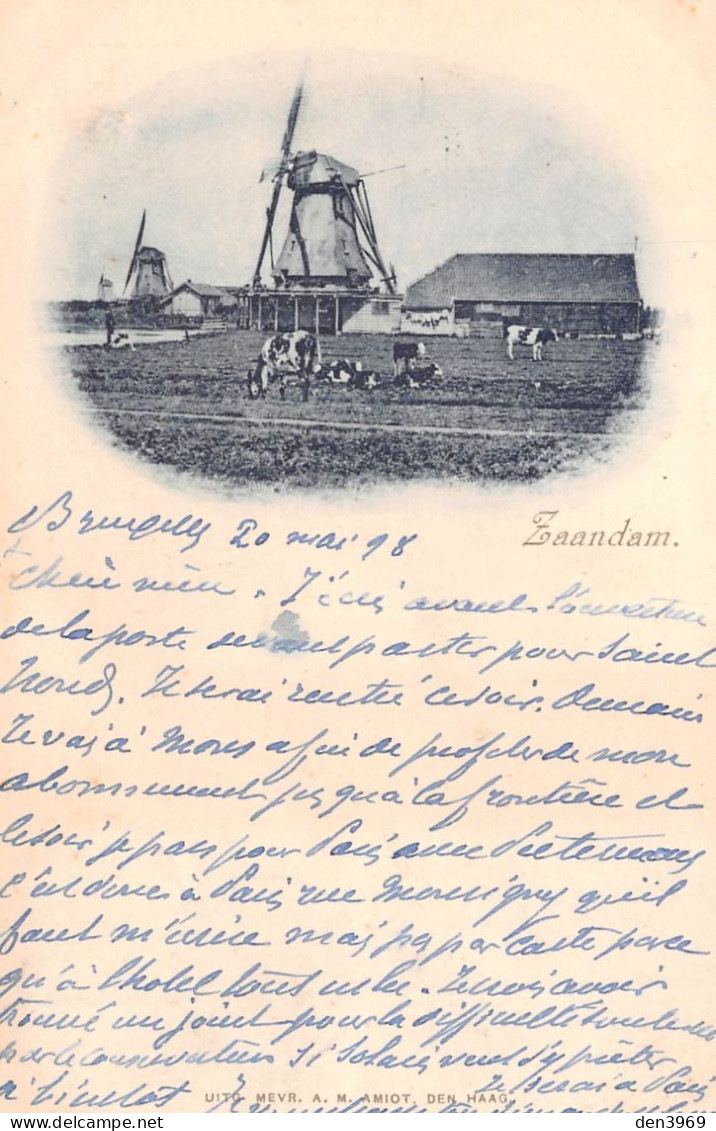 Zaandam.
Bruxelles 20 mai 98
Chère mienne. J'écris avant l'ouverture
de la poste devant partir pour Saint
Je serai rentré ce soir. Demain
Je vais à Mons afin de profiter de mon
abonnement jusqu'à la frontière et
le soir je pars pour Paris avec Pietemans
c'est donc à Paris rue Monsigny qu'il
faut m'écrire mais pas par carte parce
qu'à l'hotel tout se lit. Je crois avoir
trouvé un joint pour la difficulté soulevée
par le conservateur si Solain veut s'y prêter
à bientôt Je serai à Paris
UITG. MEVR. A. M. AMIOT, DEN HAAG.
delcampe.net
den3969